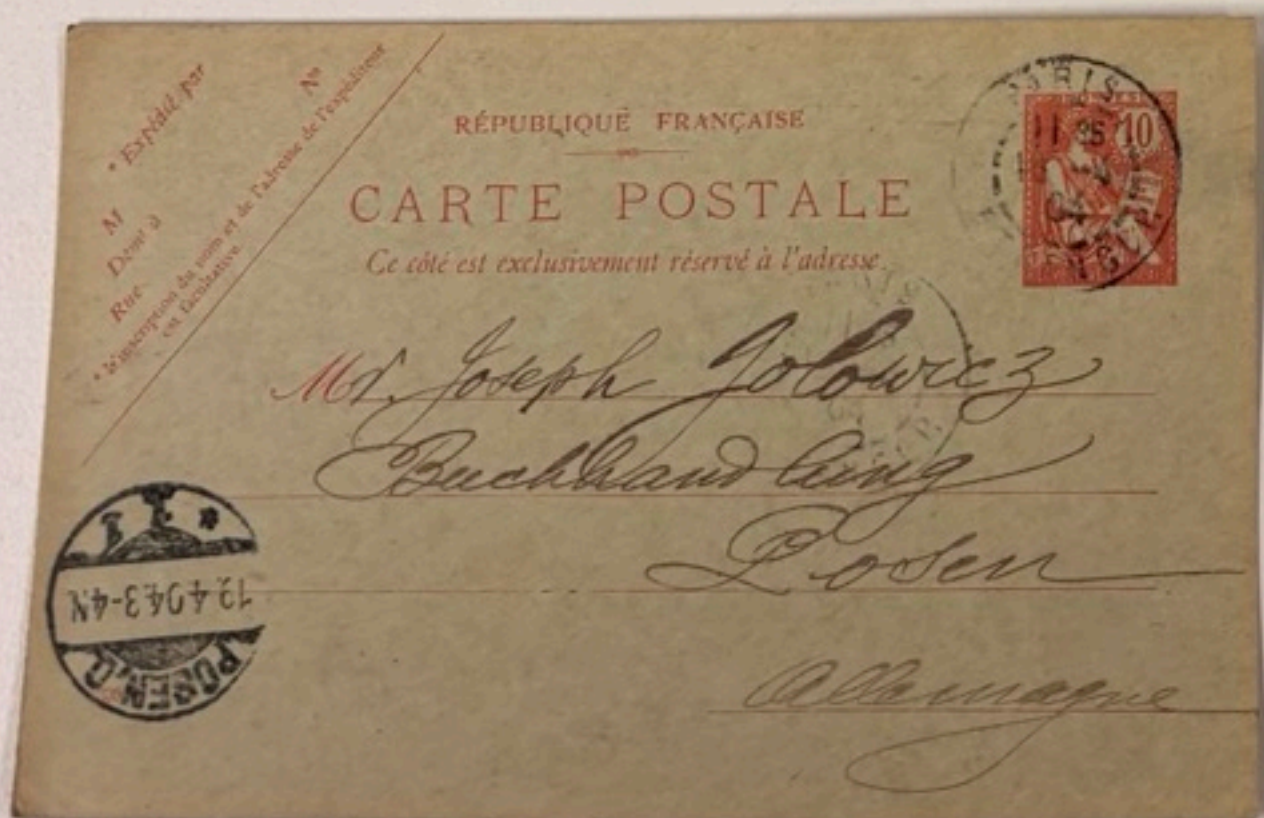 * Expédié par
M
Dem<sup>t</sup> à
Rue
N°
* L'inscription du nom et de l'adresse de l'expéditeur
est facultative.
RÉPUBLIQUE FRANÇAISE
CARTE POSTALE
Ce côté est exclusivement réservé à l'adresse.
PARIS
11 25
10
Mr. Joseph Jolowicz
Buchhandlung
Posen
Allemagne
POSEN, O.
4.04.3-4N